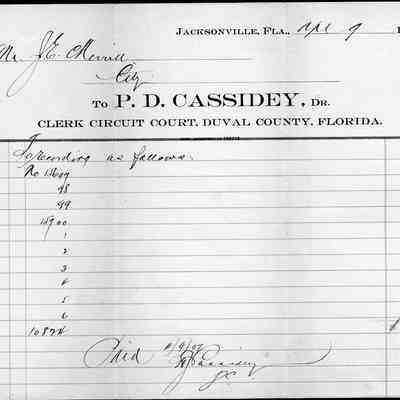 JACKSONVILLE, FLA., Apl 9 1
Mr J. E. Merrill
City
To P. D. CASSIDEY, DR.
CLERK CIRCUIT COURT, DUVAL COUNTY, FLORIDA.
To
Recording as follows.
No
98
99
14900
1
2
3
4
5
6
10874
Paid 4/9/07
Cassidey